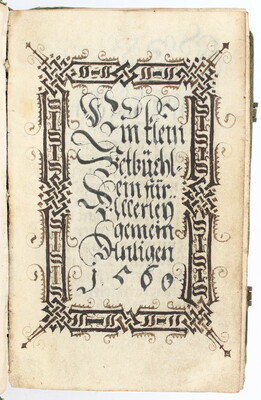 Ein klein
Betbüchl-
Lein für
Allerley
gemein
Anligen
1560